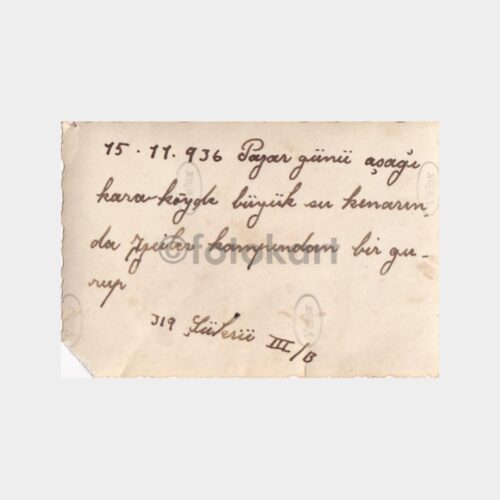 15.11.936 Pazar günü aşağı
kara-köyde büyük su kenarın,
da İzciler kampından bir gu-
rup
319 Şükrü III/B
©fotokart
Velox
Velox
Velox